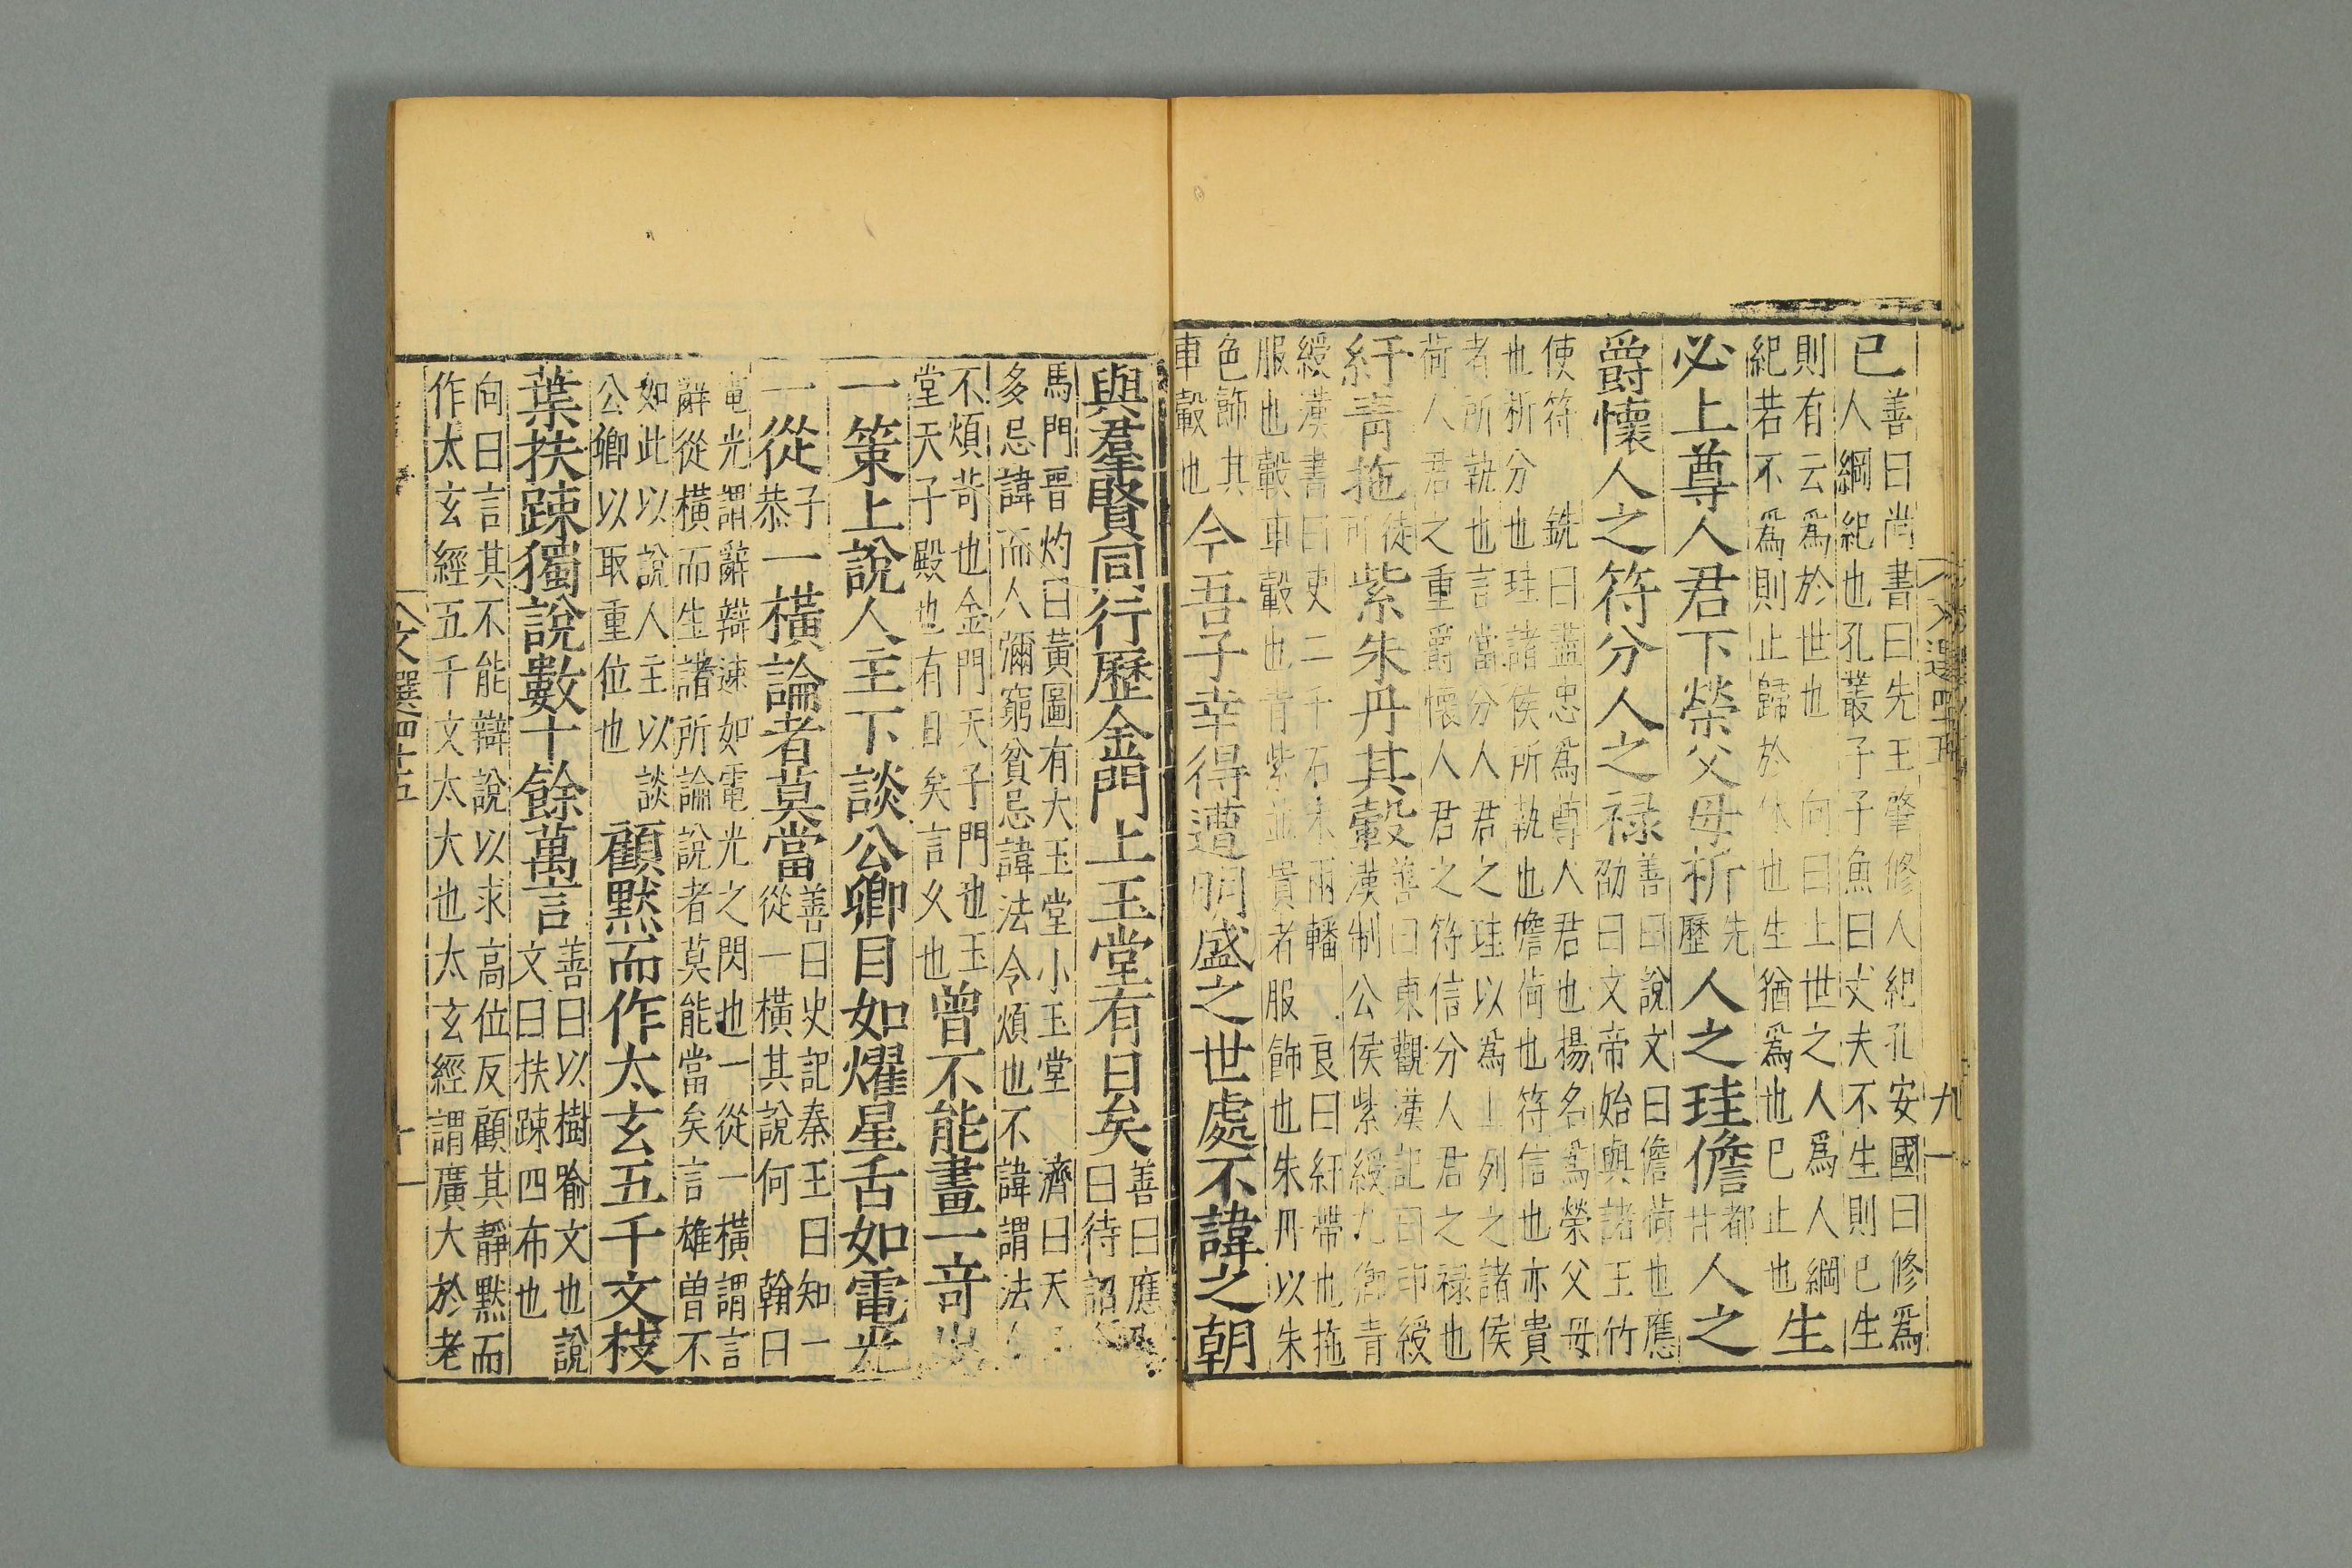 已善曰尚書曰先王肇修人紀孔安國曰修爲
人綱紀也孔叢子子魚曰丈夫不生則已生
則有云爲於世也 向曰上世之人爲人綱
紀若不爲則止歸於休也生猶爲也已止也生
必上尊人君下榮父母析先歷人之珪儋都甘人之
爵懷人之符分人之禄善曰說文曰儋荷也應
劭曰文帝始與諸王竹
使符 銑曰盡忠爲尊人君也揚名爲榮父母
也析分也珪諸侯所執也儋荷也符信也亦貴
者所執也言當分人君之珪以爲上列之諸侯
荷人君之重爵懷人君之符信分人君之禄也
紆青拖徒所紫朱丹其轂善曰東觀漢記曰印綬
漢制公侯紫綬九卿青
綬漢書曰吏二千石朱兩轓 良曰紆帶也拖
服也轂車轂也青紫並貴者服飾也朱丹以朱
色飾其
車轂也今吾子幸得遭明盛之世處不諱之朝
與羣賢同行歷金門上玉堂有日矣善曰應
曰待詔
馬門晋灼曰黃圖有大玉堂小玉堂 濟曰天
多忌諱而人彌窮貧忌諱法令煩也不諱謂法
不煩苛也金門天子門也玉
堂天子殿也有日矣言久也曾不能畫一竒
一策上說人主下談公卿目如燿星舌如電光
一從子恭一橫論者莫當善曰史記秦王曰知一
從一橫其說何 翰曰
電光謂辭辯速如電光之閃也一從一橫謂言
辭從橫而生諸所論說者莫能當矣言雄曾不
如此以說人主以談
公卿以取重位也顧默而作太玄五千文枝
葉扶踈獨說數十餘萬言善曰以樹喻文也說
文曰扶踈四布也
向曰言其不能辯說以求高位反顧其靜默而
作太玄經五千文太大也太玄經謂廣大於老
文選四十五
十一